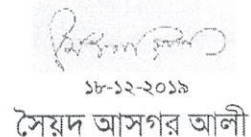 ১৮-১২-২০১৯
সৈয়দ আসগর আলী